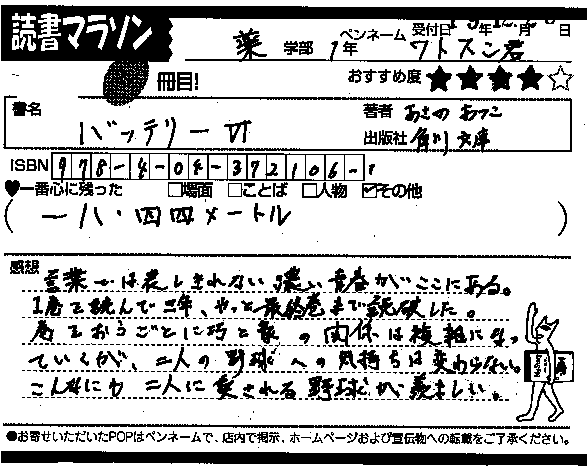 読書マラソン
薬 学部 1年 ペンネーム ワトスン君
受付日 年
冊目! おすすめ度 ★★★★☆
書名 バッテリーVI
著者 あさの あつこ
出版社 角川文庫
ISBN 978-4-04-372106-1
♥一番心に残った □場面 □ことば □人物 ☑その他
(一八・四四メートル)
感想
言葉では表しきれない濃い青春がここにある。
1巻を読んで三年、やっと最終巻まで読破した。
巻をおうごとに巧と豪の関係は複雑になっ
ていくが、二人の野球への気持ちは変わらない。
こんなにも二人に愛される野球が羨ましい。
●お寄せいただいたPOPはペンネームで、店内で掲示、ホームページおよび宣伝物への転載をご了承ください。